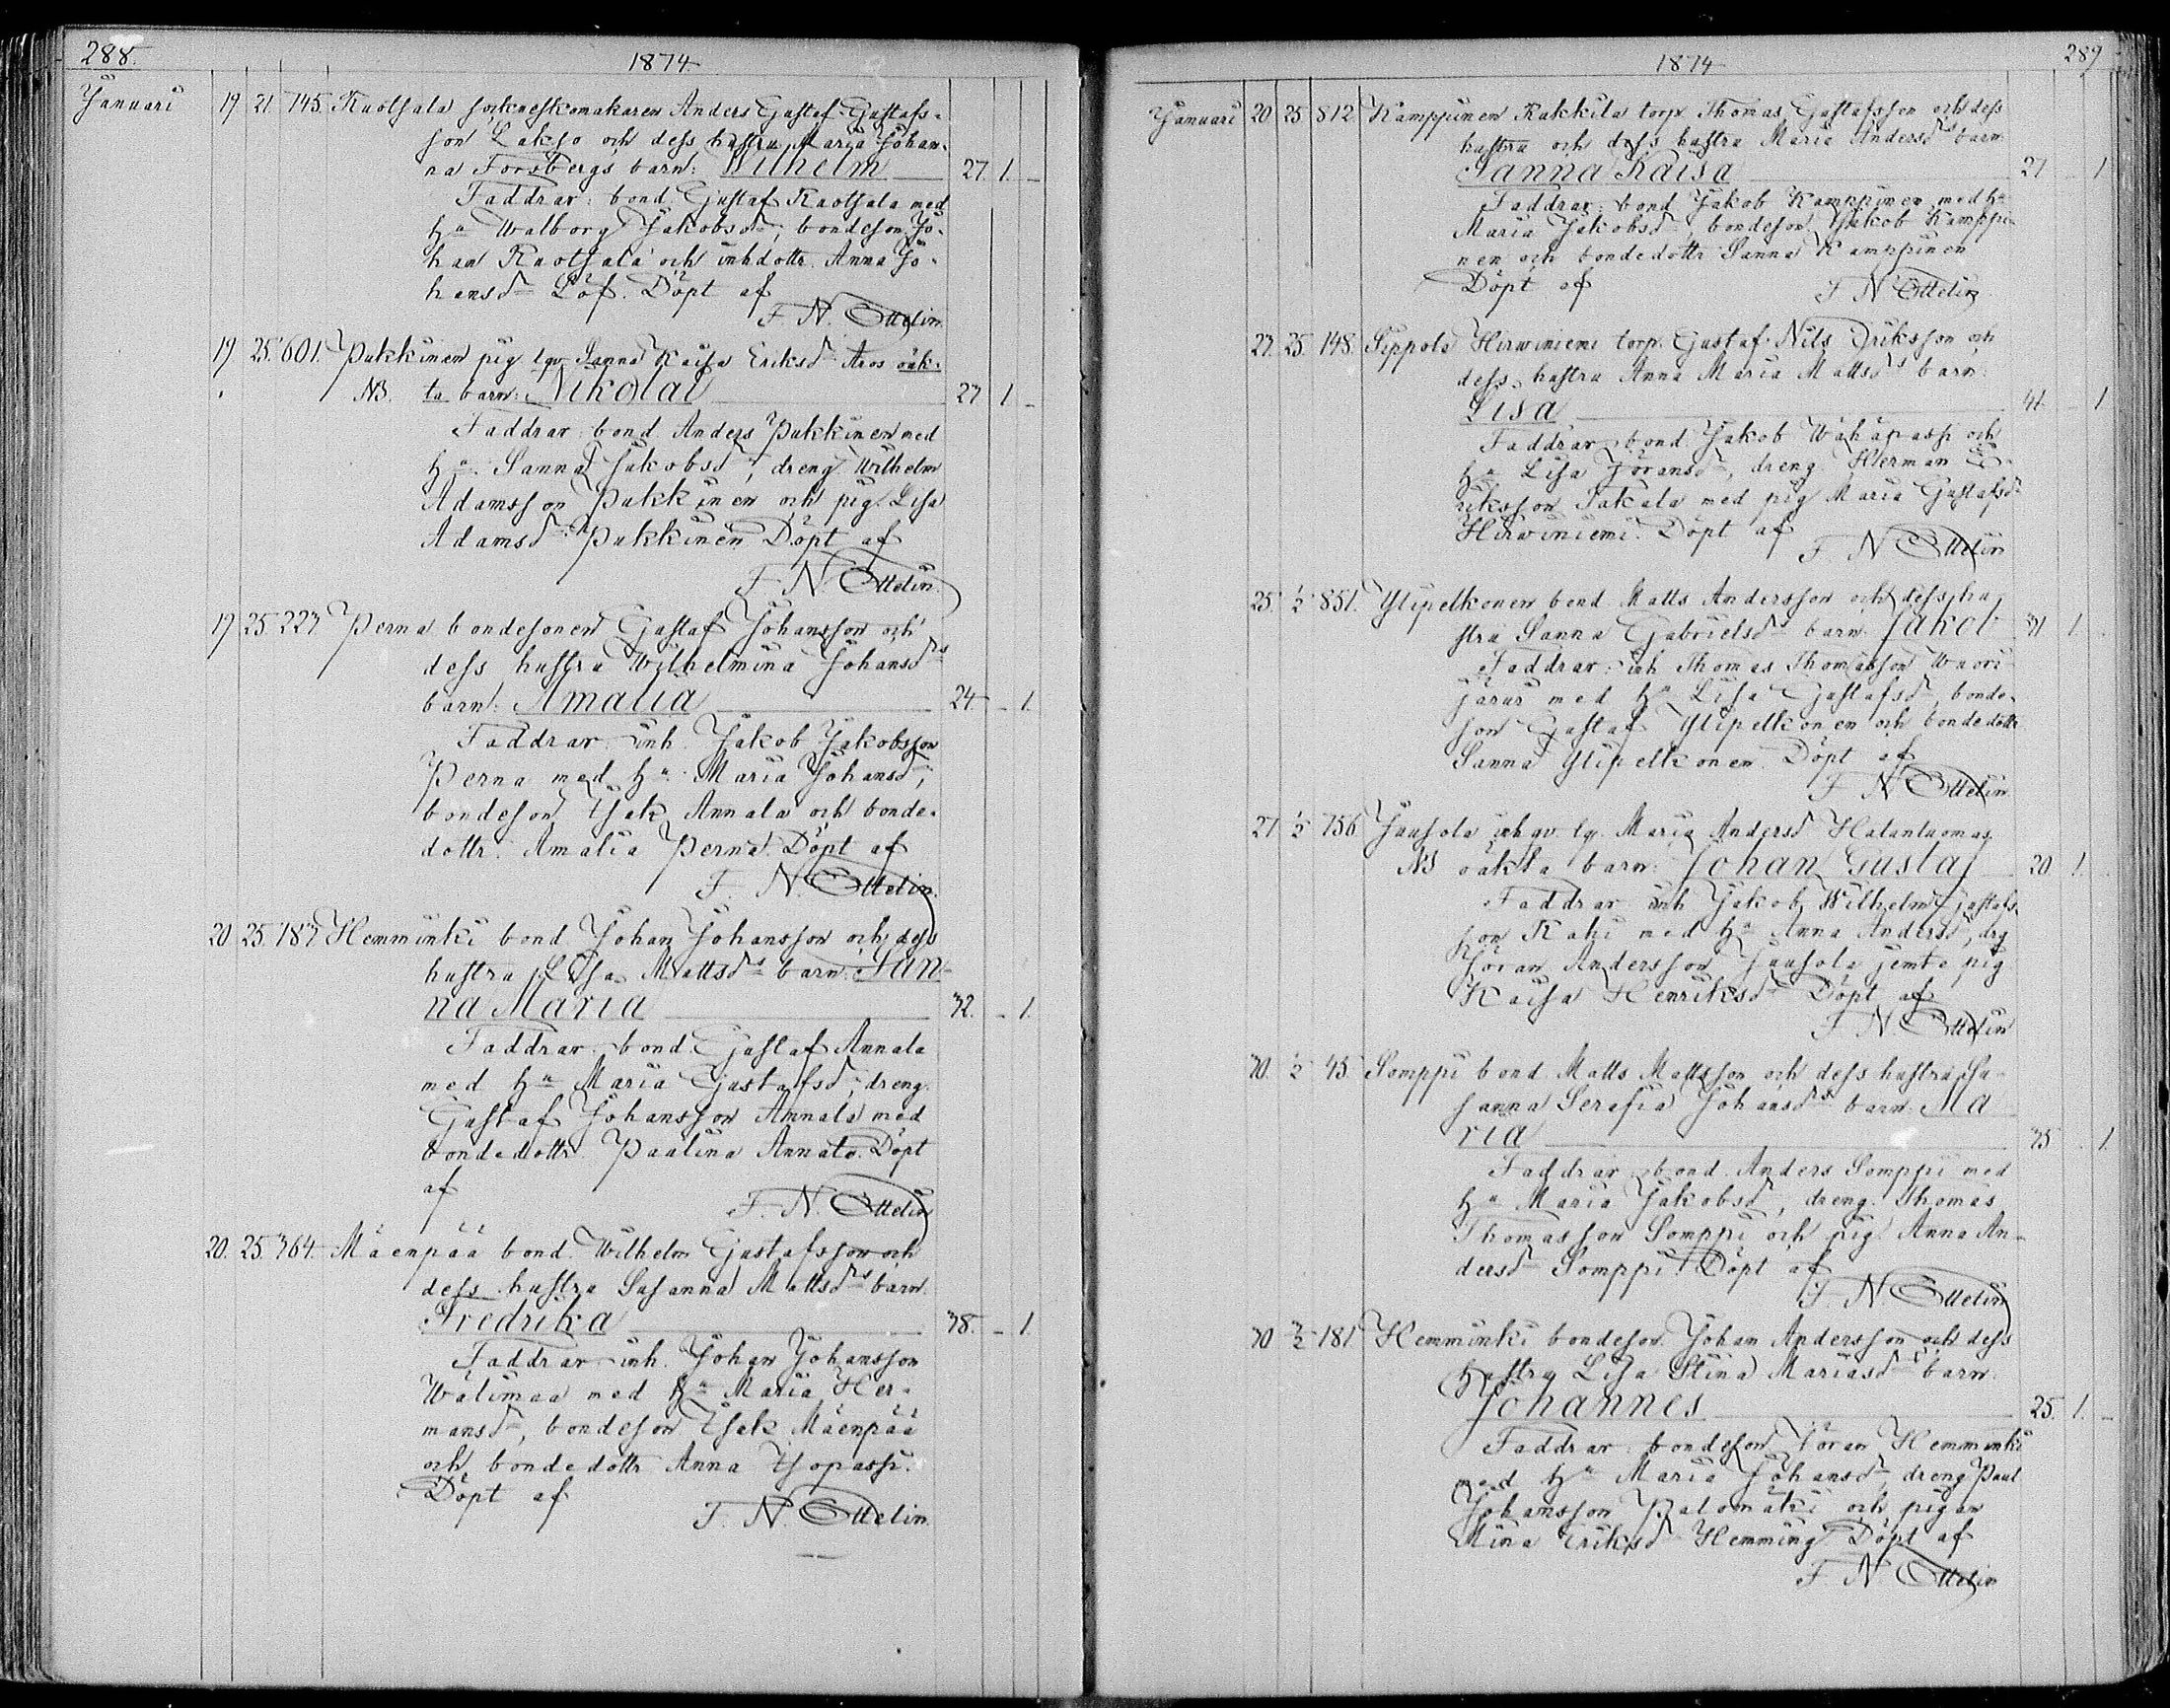 288.
1874
Januari 19 21. 745. Ruotsala sockneskomakaren Anders Gustaf Gustafs-
son Lakso och dess hustru Maria Johan-
na Forsbergs barn: Wilhelm 27. 1. –
Faddrar: bond. Gustaf Ruotsala med
hu Walborg Jakobsdr, bondeson Jo-
han Ruotsala och inhdottr. Anna Jo-
hansdr Löf. Döpt af
F. N. Ottelin.
19 25. 601. Pukkinen pig. lqv. Sanna Kaisa Eriksdr Aros oäk-
NB. ta barn: Nikolai 27 1 –
Faddrar: bond. Anders Pukkinen med
hu Sanna Jakobsdr, dreng. Wilhelm
Adamsson Pukkinen och pig. Lisa
Adamsdr Pukkinen Döpt af
F. N. Ottelin.
19 25. 227 Perna bondesonen Gustaf Johansson och
dess hustru Wilhelmina Johansdrs
barn: Amalia 24. – 1.
Faddrar: inh. Jakob Jakobsson
Perna med hu Maria Johansdr,
bondeson Isak Annala och bonde-
dottr. Amalia Perna. Döpt af
F. N. Ottelin.
20 25. 187 Hemminki bond. Johan Johansson och dess
hustru Lisa Mattsdrs barn: San-
na Maria 32. – 1.
Faddrar: bond. Gustaf Annala
med hu Maria Gustafsdr, dreng.
Gustaf Johansson Annala med
bondedottr. Paalina Annala. Döpt
af
F. N. Ottelin
20. 25. 364. Mäenpää bond. Wilhelm Gustafsson och
dess hustru Susanna Mattsdrs barn.
Fredrika 38. – 1.
Faddrar: inh. Johan Johansson
Walimaa med hu Maria Her-
mansdr, bondeson Isak Mäenpää
och bondedottr Anna Isopassi.
Döpt af
F. N. Ottelin.
1874
289
Januari 20 25 812 Kamppinen Rukkila torp. Thomas Gustafsson och dess
hustru och dess hustru Maria Andersdrs barn
Sanna Kaisa 27 – 1
Faddrar: bond Jakob Kamppinen med hu
Maria Jakobsdr, bondeson Jakob Kamppi-
nen och bondedottr Sanna Kamppinen
Döpt af F. N. Ottelin
23. 25. 148. Sippola Hirwiniemi torp. Gustaf Nils Eriksson och
dess hustru Anna Maria Mattsdrs barn:
Lisa 41 – 1
Faddrar: bond Jakob Wähäpassi och
hu Lisa Jöransdr, dreng. Herman E-
riksson Takala med pig Maria Gustafsdr
Hirwiniemi. Döpt af
F. N. Ottelin
25. 1/2 851. Ylipelkonen bond Matts Andersson och dess hu-
stru Sanna Gabrielsdrs barn: Jakob 31 1
Faddrar: inh Thomas Thomasson Wuori-
järwi med hu Lisa Gustafsdr, bonde-
son Gustaf Ylipelkonen och bondedottr
Sanna Ylipelkonen. Döpt af
F. N. Ottelin
27 1/2 756 Juusola inh qv. lq. Maria Andersdr Hatantuomas
NB oäkta barn: Johan Gustaf 20 1.
Faddrar inh Jakob Wilhelm Gustafs-
son Kahi med hu Anna Andersdr, drg
Jöran Andersson Juusola jemte pig
Kaisa Henriksdr Döpt af
F. N. Ottelin
30. 1/2 45 Somppi bond. Matts Mattsson och dess hustru Su-
sanna Serafia Johansdrs barn: Ma
ria 35 . 1.
Faddrar bond. Anders Somppi med
hu Maria Jakobsdr, dreng. Thomas
Thomasson Somppi och pig. Anna An-
dersdr Somppi. Döpt af
F. N. Ottelin
30 3/2 181 Hemminki bondeson. Johan Andersson och dess
hustru Lisa Stina Mariasdrs barn:
Johannes 25. 1. –
Faddrar: bondeson Jöran Hemminki
med hu Maria Johansdr, dreng Paul
Johansson Palomäki och pigan
Mina Eriksdr Hemming Döpt af
F. N. Ottelin